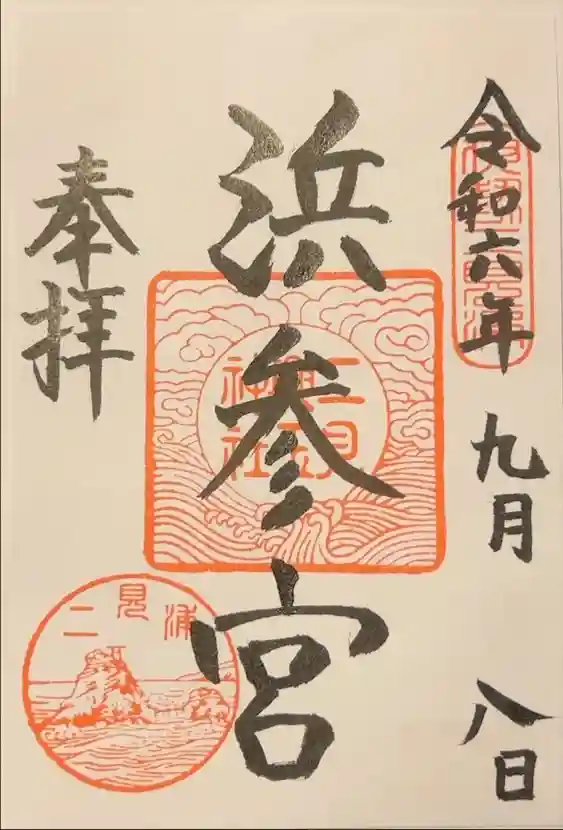 令和六年 九月 八日
浜参宮
奉拝
二見興玉神社
二見浦